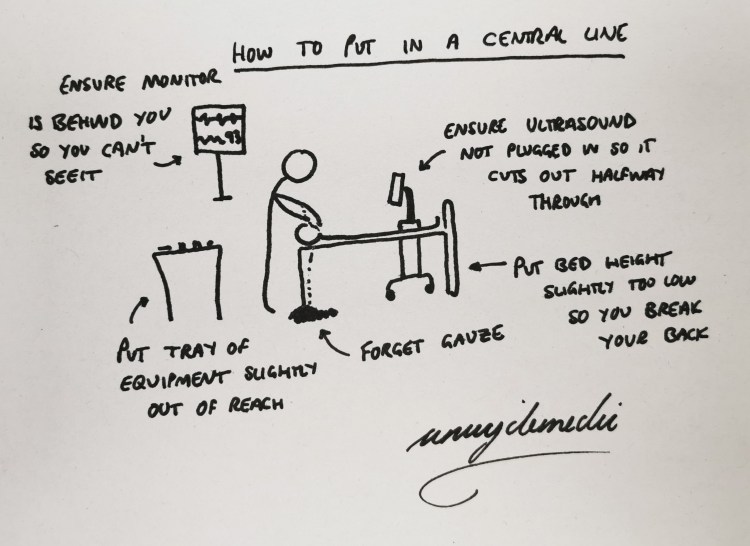 HOW TO PUT IN A CENTRAL LINE
ENSURE MONITOR
IS BEHIND YOU
SO YOU CAN'T
SEE IT
93
ENSURE ULTRASOUND
NOT PLUGGED IN SO IT
CUTS OUT HALFWAY
THROUGH
PUT BED HEIGHT
SLIGHTLY TOO LOW
SO YOU BREAK
YOUR BACK
FORGET GAUZE
PUT TRAY OF
EQUIPMENT SLIGHTLY
OUT OF REACH